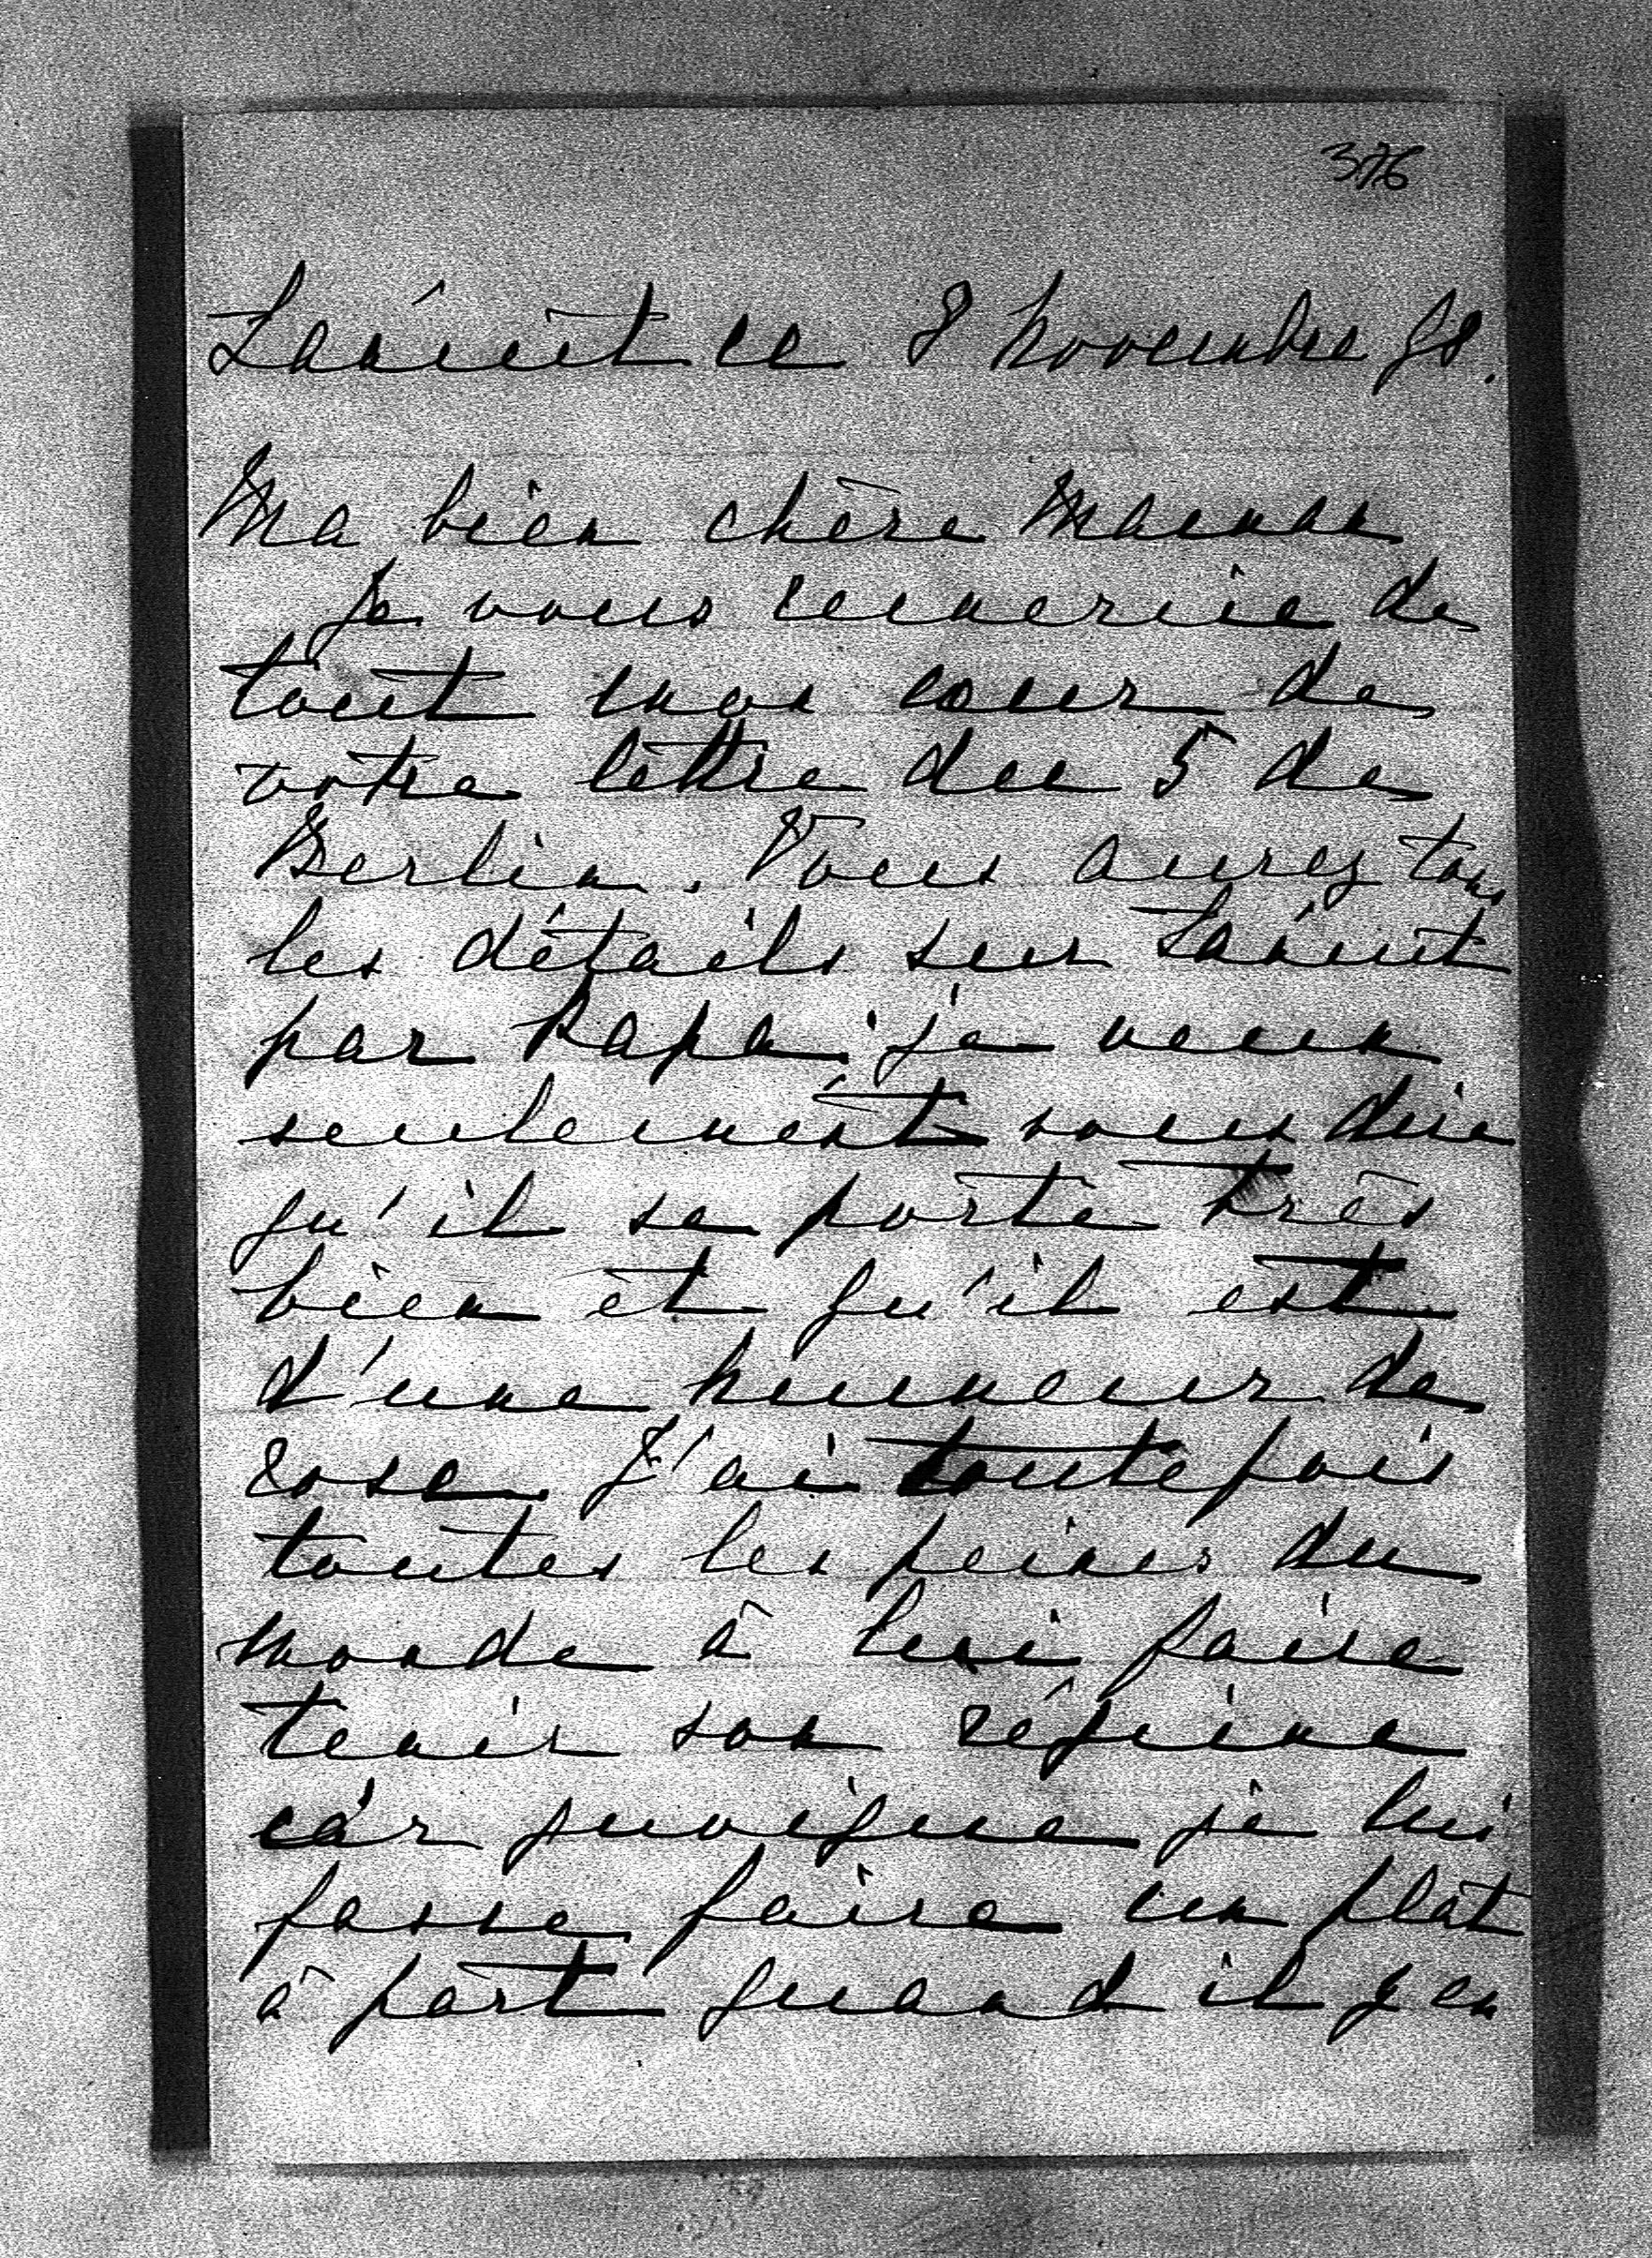 376
Łańcut ce 8 Novembre 98.
Ma bien chère Maman
Je vous remercie de
tout mon coeur de
votre lettre du 5 de
Berlin. Vous aurez tous
les détails sur Łańcut
par Papa; je veux
seulement vous dire
qu'il se porte très
bien et qu'il est
d'une humeur de
rose. J'ai toutefois
toutes les peines du
monde à lui faire
tenir son régime
car quoique je lui
fasse faire un plat
à part quand il y en